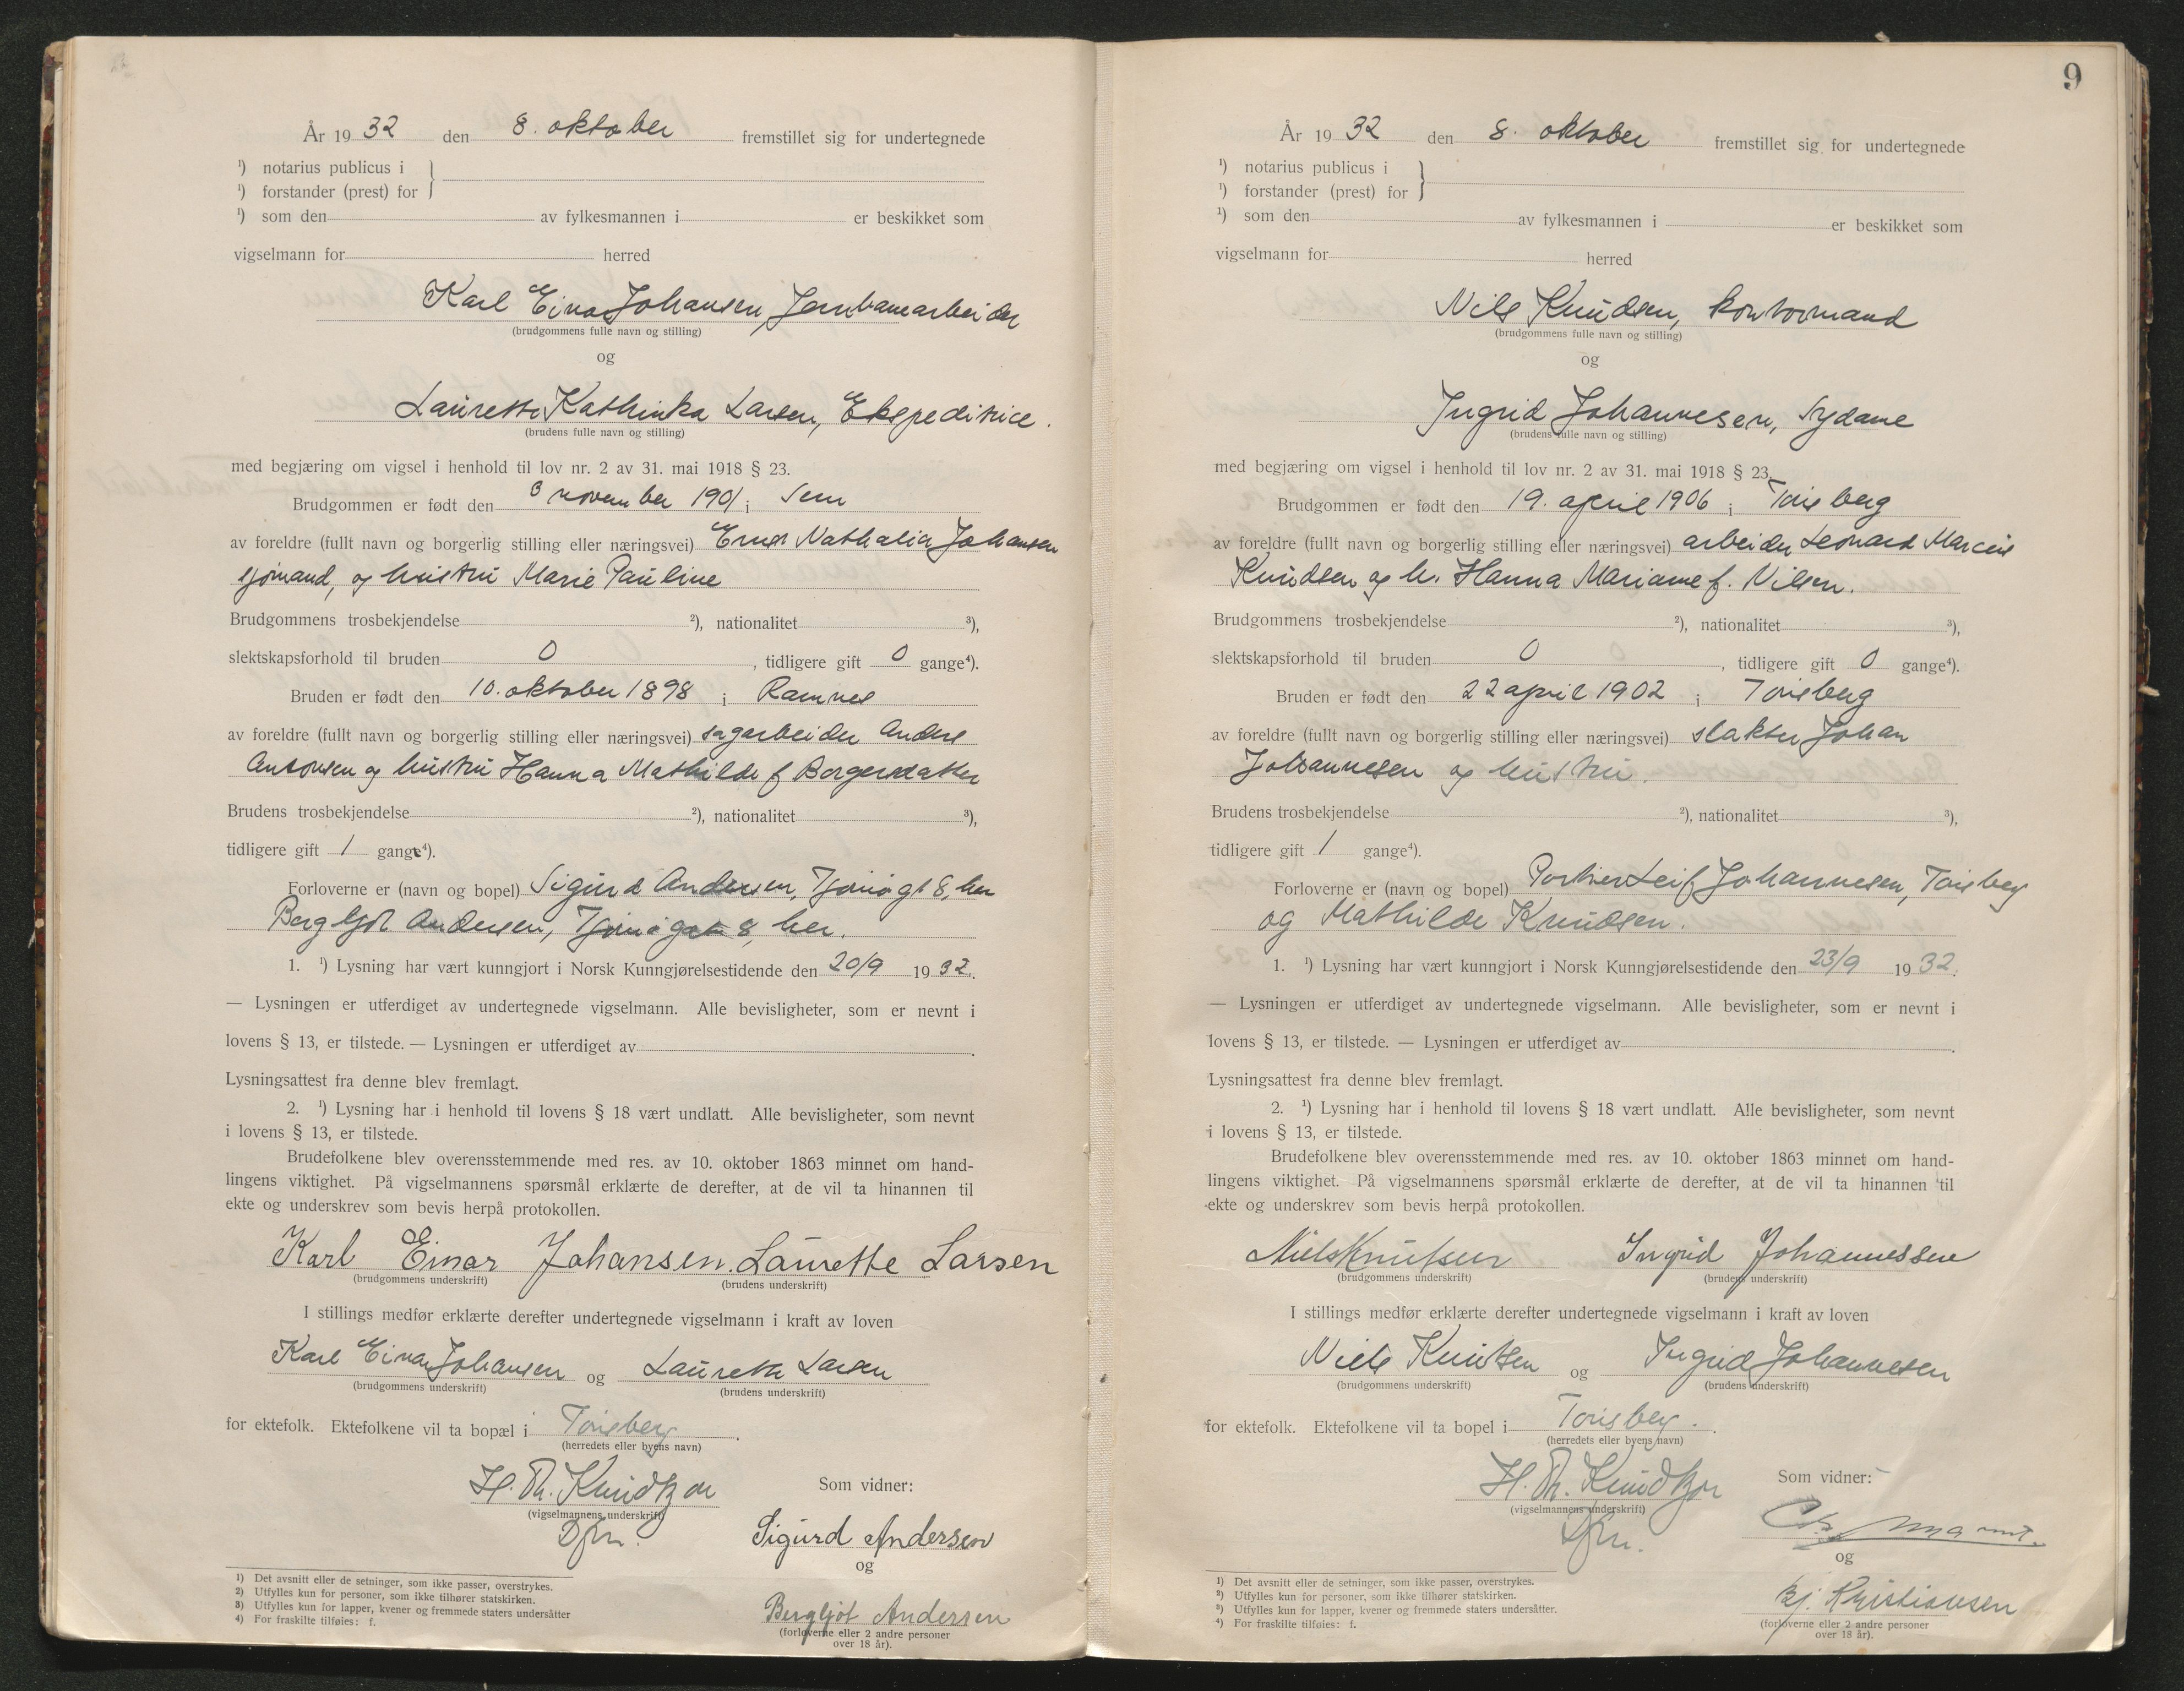 År 1932 den 8. oktober fremstillet sig for undertegnede
¹) notarius publicus i
¹) forstander (prest) for
¹) som den av fylkesmannen i er beskikket som
vigselmann for herred
Karl Einar Johansen, Jernbanearbeider
(brudgommens fulle navn og stilling)
og
Laurette Kathinka Larsen, Ekspeditrice.
(brudens fulle navn og stilling)
med begjæring om vigsel i henhold til lov nr. 2 av 31. mai 1918 § 23.
Brudgommen er født den 3 november 1901 i Sem
av foreldre (fullt navn og borgerlig stilling eller næringsvei) Nathalia Johansen
sjømand, og hustru Marie Pauline
Brudgommens trosbekjendelse ²), nationalitet ³),
slektskapsforhold til bruden 0, tidligere gift 0 gange⁴).
Bruden er født den 10. oktober 1898 i Ramnes
av foreldre (fullt navn og borgerlig stilling eller næringsvei) sagarbeider Anders
Antonsen og hustru Hanna Mathilde f Borgersdatter
Brudens trosbekjendelse ²), nationalitet ³),
tidligere gift 1 gange⁴).
Forloverne er (navn og bopel) Sigurd Andersen, Tjømøgt 8, her
Bergljot Andersen, Tjømøgat 8, her.
1. ¹) Lysning har vært kunngjort i Norsk Kunngjørelsestidende den 20/9 1932.
— Lysningen er utferdiget av undertegnede vigselmann. Alle bevisligheter, som er nevnt i
lovens § 13, er tilstede. — Lysningen er utferdiget av .
Lysningsattest fra denne blev fremlagt.
2. ¹) Lysning har i henhold til lovens § 18 vært undlatt. Alle bevisligheter, som nevnt
i lovens § 13, er tilstede.
Brudefolkene blev overensstemmende med res. av 10. oktober 1863 minnet om hand-
lingens viktighet. På vigselmannens spørsmål erklærte de derefter, at de vil ta hinannen til
ekte og underskrev som bevis herpå protokollen.
Karl Einar Johansen. Laurette Larsen
(brudgommens underskrift) (brudens underskrift)
I stillings medfør erklærte derefter undertegnede vigselmann i kraft av loven
Karl Einar Johansen og Laurette Larsen
(brudgommens underskrift) (brudens underskrift)
for ektefolk. Ektefolkene vil ta bopæl i Tønsberg.
(herredets eller byens navn)
H. Th. Knudtzon Som vidner:
(vigselmannens underskrift)
Sigurd Andersen
og
Bergljot Andersen
(forloverne eller 2 andre personer
over 18 år).
¹) Det avsnitt eller de setninger, som ikke passer, overstrykes.
²) Utfylles kun for personer, som ikke tilhører statskirken.
³) Utfylles kun for lapper, kvener og fremmede staters undersåtter
⁴) For fraskilte tilføies: f.
9
År 1932 den 8. oktober fremstillet sig for undertegnede
¹) notarius publicus i
¹) forstander (prest) for
¹) som den av fylkesmannen i er beskikket som
vigselmann for herred
Nils Knudsen, kontormand
(brudgommens fulle navn og stilling)
og
Ingrid Johannesen, Sydame
(brudens fulle navn og stilling)
med begjæring om vigsel i henhold til lov nr. 2 av 31. mai 1918 § 23.
Brudgommen er født den 19. april 1906 i Tønsberg
av foreldre (fullt navn og borgerlig stilling eller næringsvei) arbeider Leonard Marcius
Knudsen og h. Hanna Marianne f. Nilsen.
Brudgommens trosbekjendelse ²), nationalitet ³),
slektskapsforhold til bruden 0, tidligere gift 0 gange⁴).
Bruden er født den 22 april 1902 i Tønsberg
av foreldre (fullt navn og borgerlig stilling eller næringsvei) slakter Johan
Johannesen og hustru.
Brudens trosbekjendelse ²), nationalitet ³),
tidligere gift 1 gange⁴).
Forloverne er (navn og bopel) Portier Leif Johannesen, Tønsberg
og Mathilde Knudsen.
1. ¹) Lysning har vært kunngjort i Norsk Kunngjørelsestidende den 23/9 1932.
— Lysningen er utferdiget av undertegnede vigselmann. Alle bevisligheter, som er nevnt i
lovens § 13, er tilstede. — Lysningen er utferdiget av .
Lysningsattest fra denne blev fremlagt.
2. ¹) Lysning har i henhold til lovens § 18 vært undlatt. Alle bevisligheter, som nevnt
i lovens § 13, er tilstede.
Brudefolkene blev overensstemmende med res. av 10. oktober 1863 minnet om hand-
lingens viktighet. På vigselmannens spørsmål erklærte de derefter, at de vil ta hinannen til
ekte og underskrev som bevis herpå protokollen.
Niels Knutsen Ingrid Johannessen
(brudgommens underskrift) (brudens underskrift)
I stillings medfør erklærte derefter undertegnede vigselmann i kraft av loven
Niels Knutsen og Ingrid Johannesen
(brudgommens underskrift) (brudens underskrift)
for ektefolk. Ektefolkene vil ta bopel i Tønsberg.
(herredets eller byens navn)
H. Th. Knudtzon Som vidner:
(vigselmannens underskrift)
og
Bj. Kristiansen
(forloverne eller 2 andre personer
over 18 år).
¹) Det avsnitt eller de setninger, som ikke passer, overstrykes.
²) Utfylles kun for personer, som ikke tilhører statskirken.
³) Utfylles kun for lapper, kvener og fremmede staters undersåtter.
⁴) For fraskilte tilføies: f.